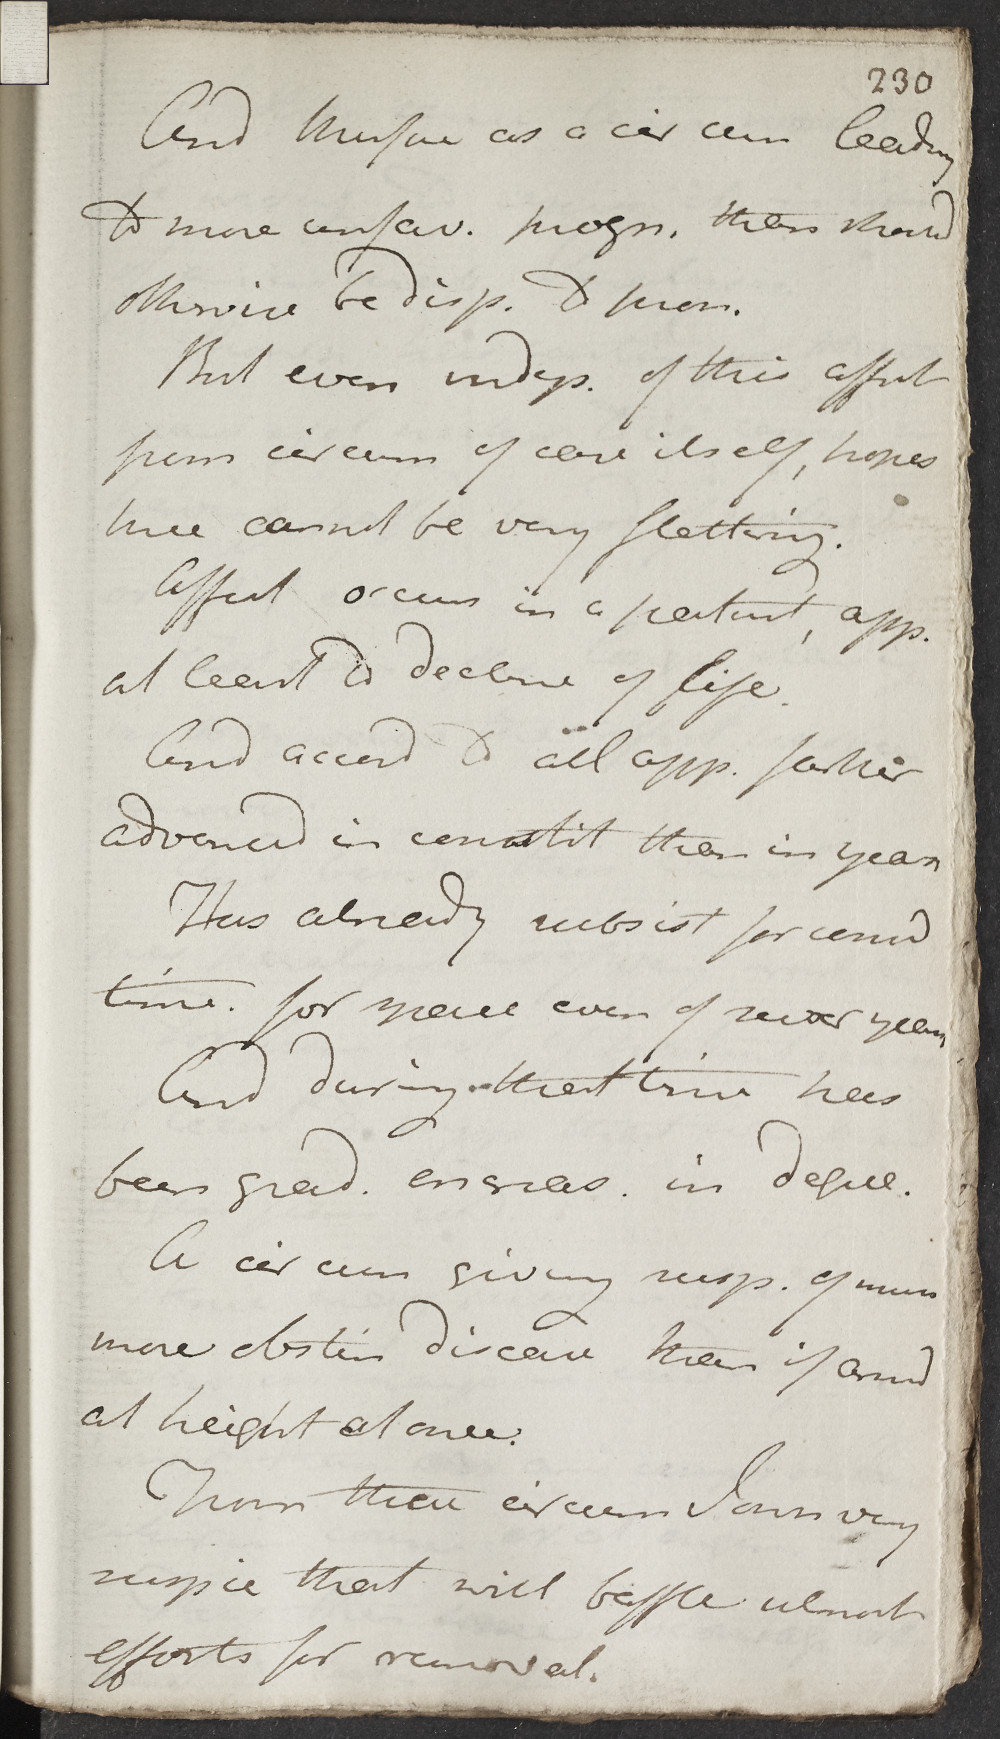 230
And therfore as a circum leading
to more unfav. progn. than should
otherwise be disp. to pron.
But even indep. of this affect
from circum of case itself, hopes
here cannot be very flattering.
Affect occurs in a patient, app.
at least to decline of life.
And accord to all app. farther
advanced in constit than in years
Has already subsist for consid
time. for space even of sever years
And during that time has
been grad. encreas. in degree.
A circum giving susp. of much
more obstin disease than if arrivd
at height at once.
From these circum I own very
suspic that will baffle utmost
efforts for removal.